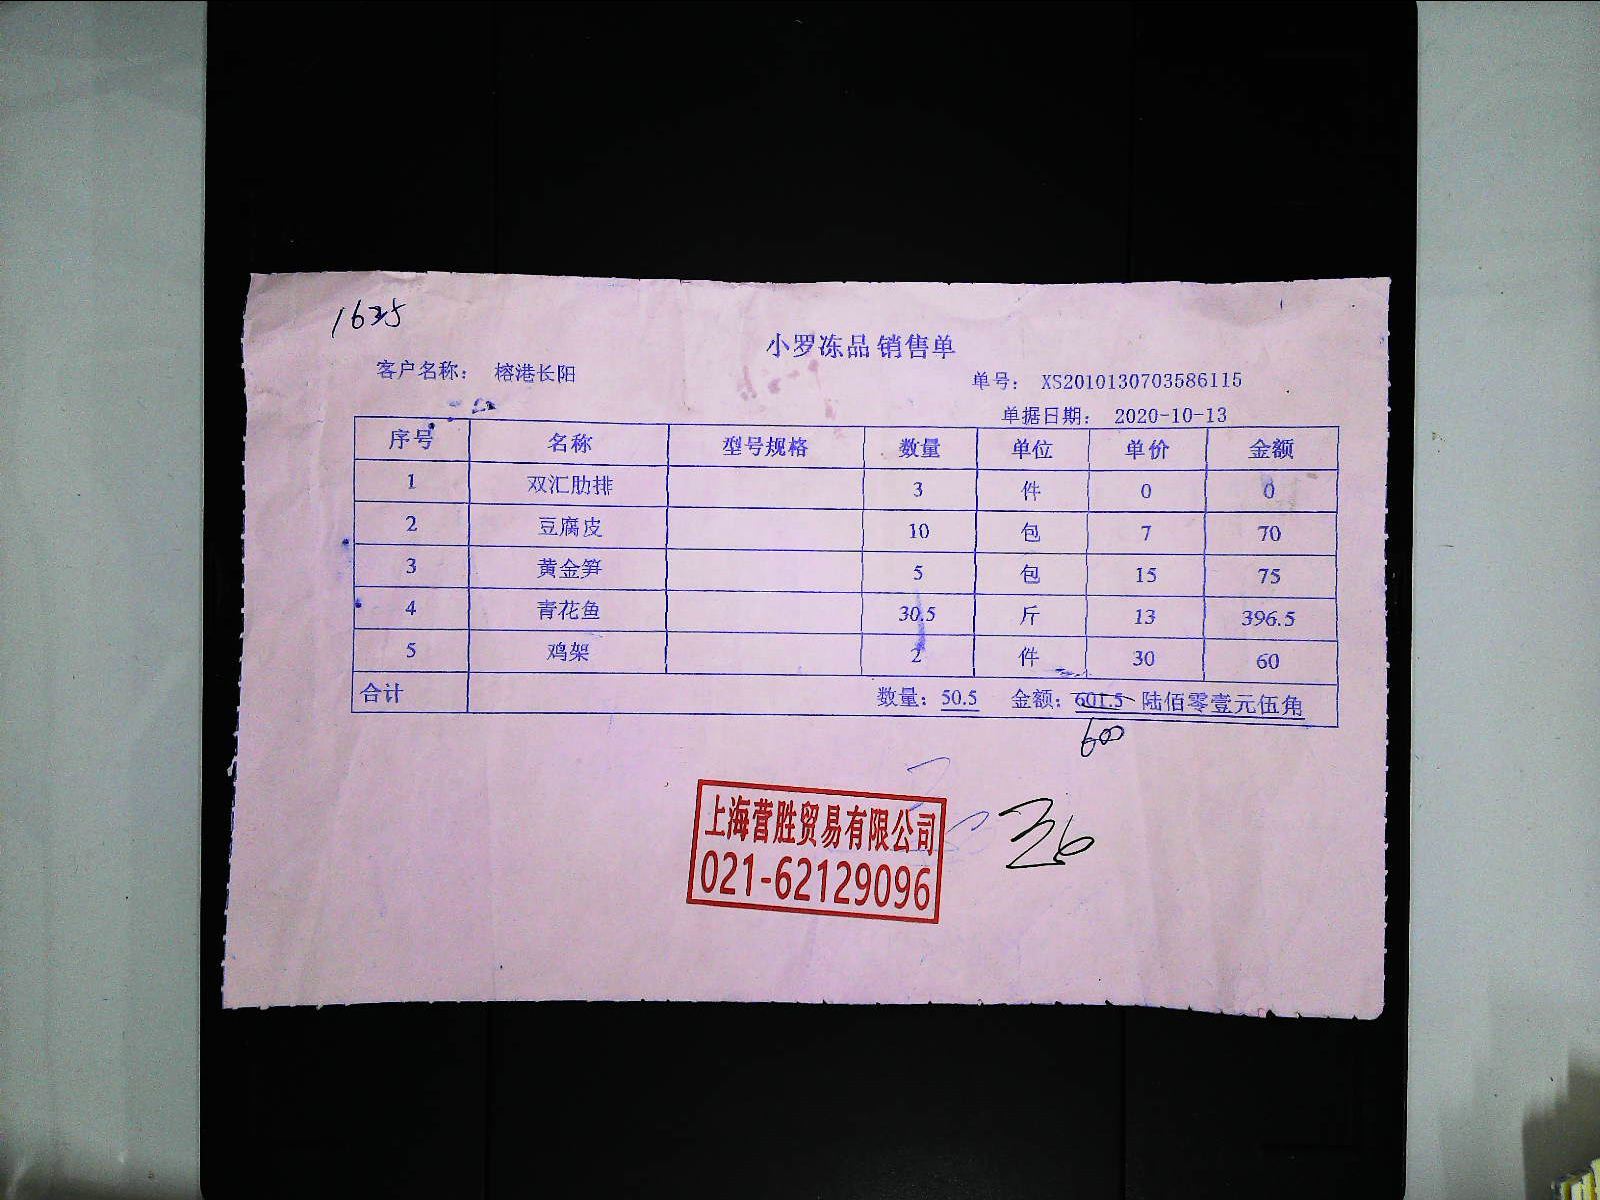 1625
小罗冻品 销售单
客户名称： 榕港长阳
单号： XS2010130703586115
单据日期： 2020-10-13
序号 名称 型号规格 数量 单位 单价 金额
1 双汇肋排 3 件 0 0
2 豆腐皮 10 包 7 70
3 黄金笋 5 包 15 75
4 青花鱼 30.5 斤 13 396.5
5 鸡架 2 件 30 60
合计 数量：50.5 金额：601.5 陆佰零壹元伍角
600
上海营胜贸易有限公司
021-62129096
36